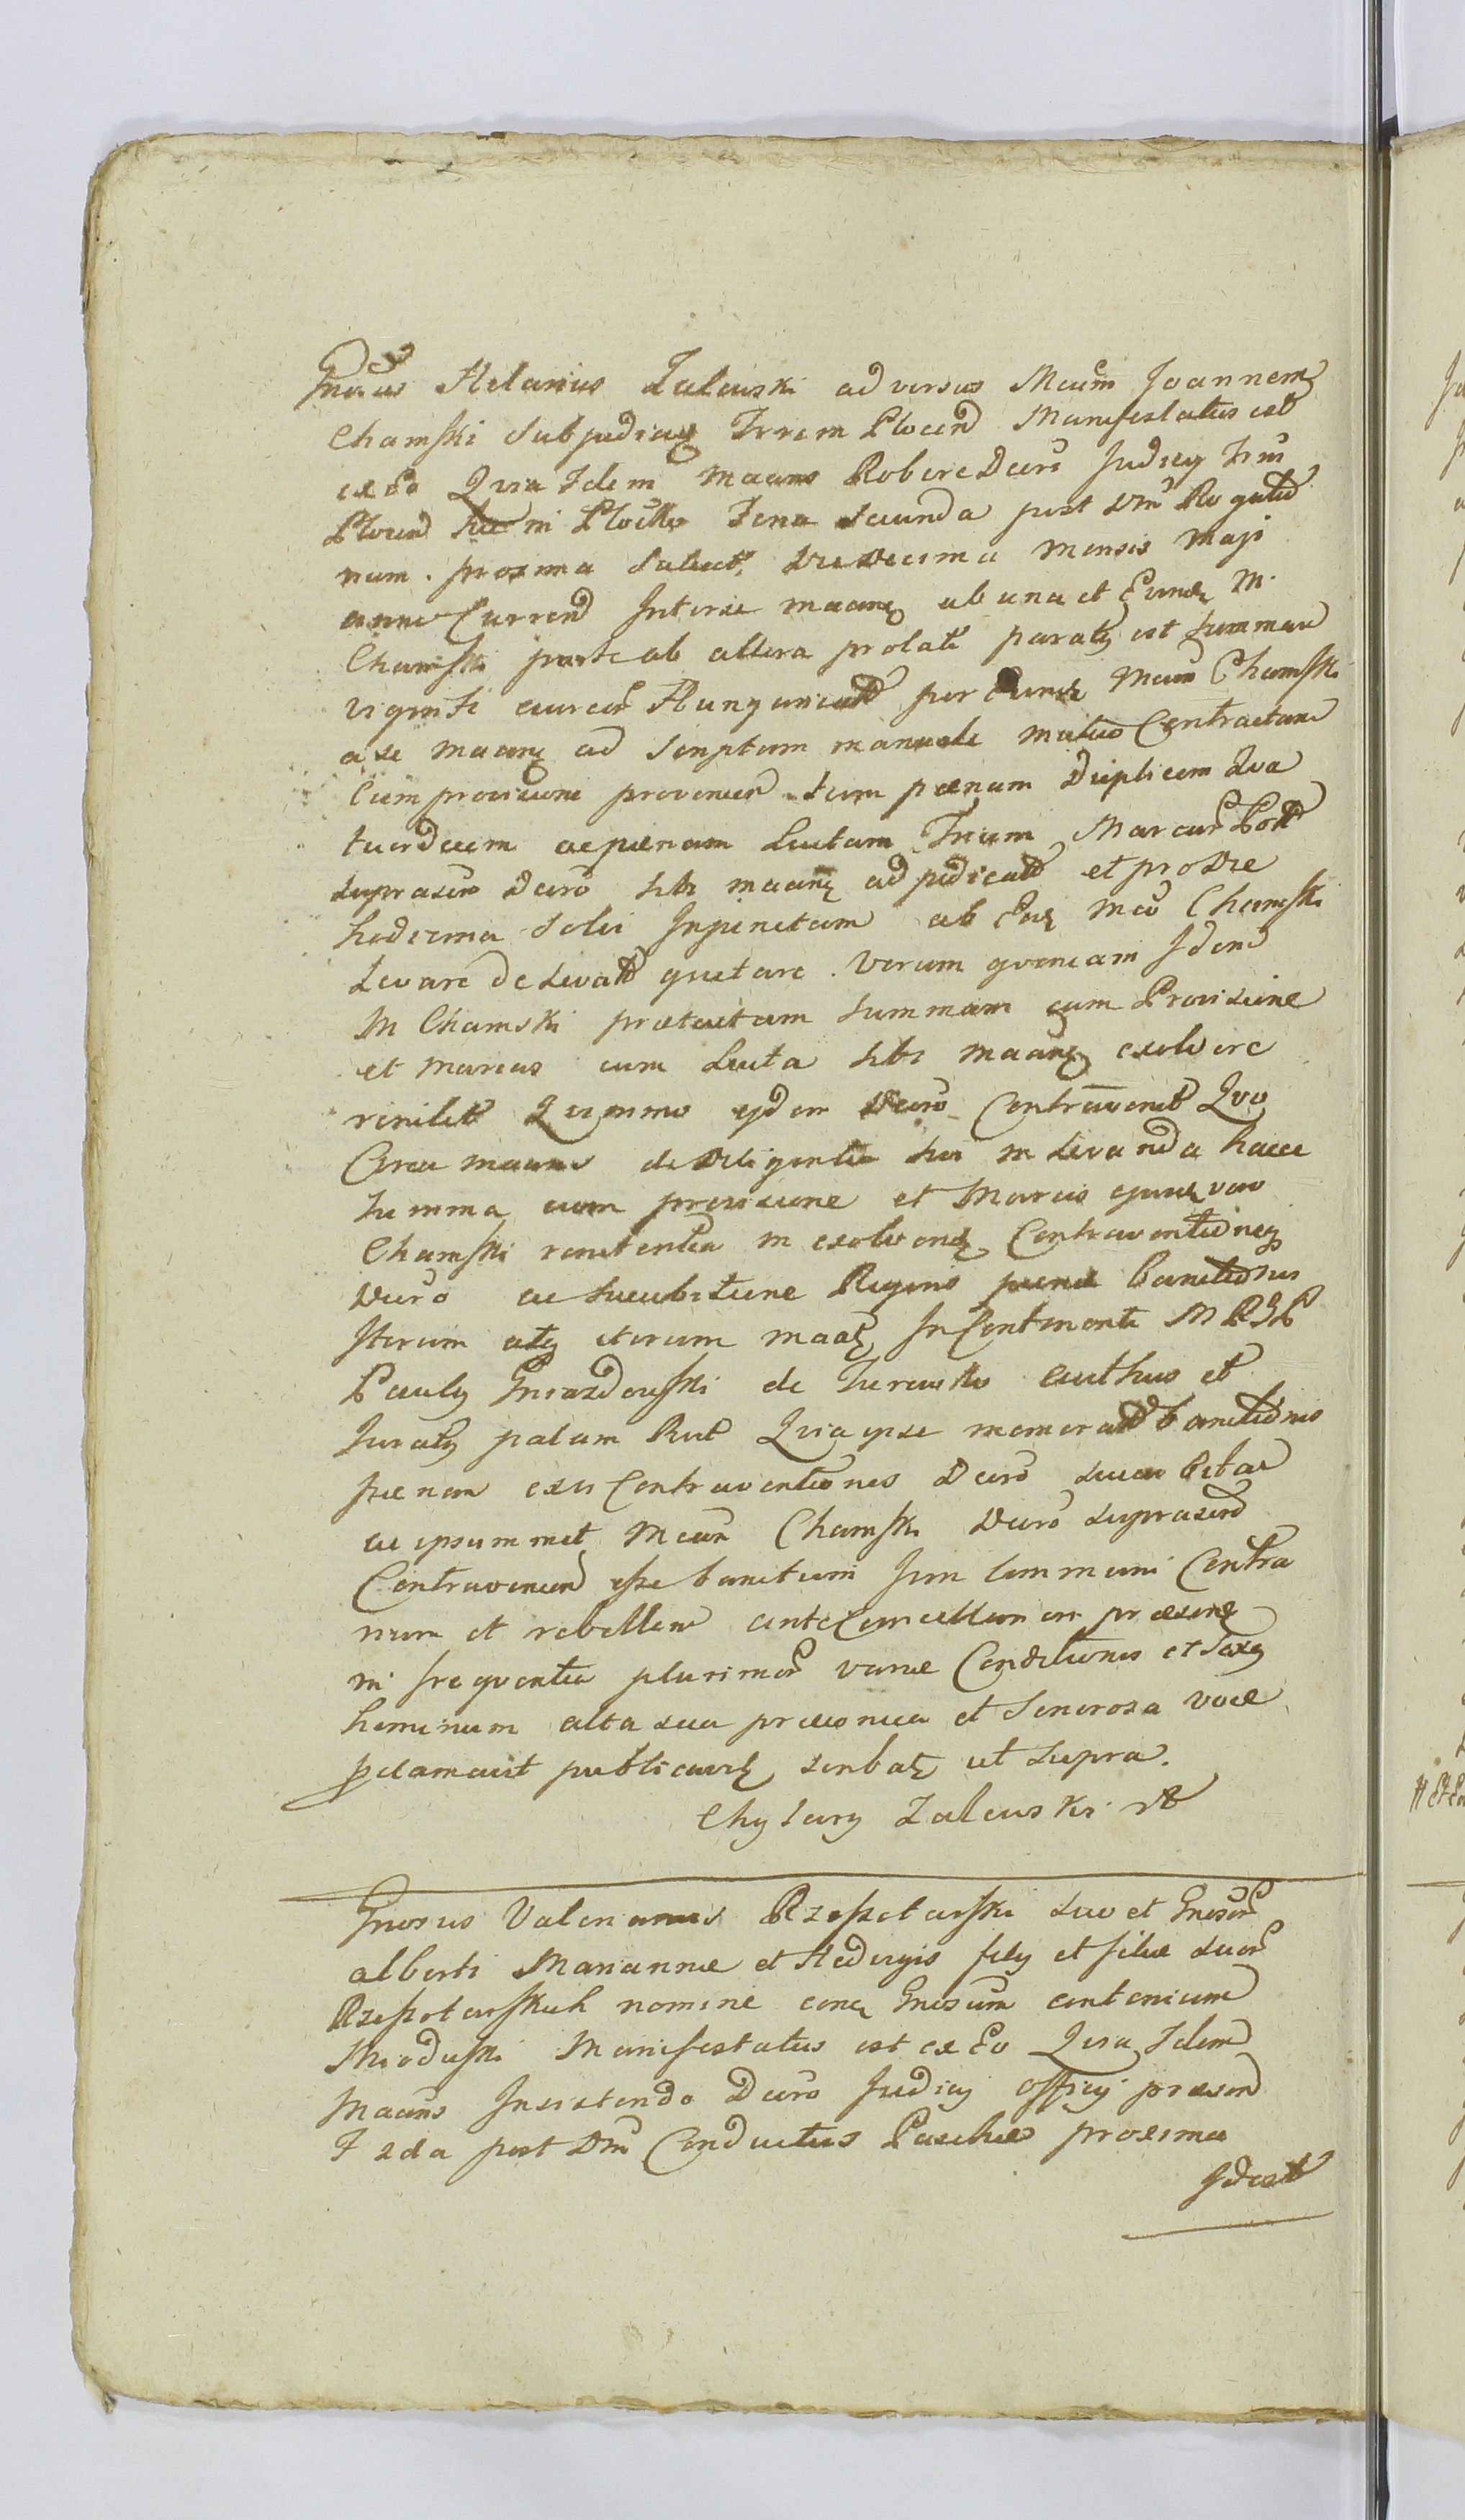 Gnosus Helarius Zalewski adversus Mcum Joannem
Chamski Subjudicem Terrem Plocen Manifestatus est
ex eo Quia Idem maans Robore Decri Judicy Trris
Plocen hic in Plocko Feria secunda post Dm Rogatio
num proxima Salicet, die decima mensis Maji
anno Curren Inter se maanem ab una et Eund M
Chamski parte ab altera prolati paratus est summam
viginti aureor Hungarical per Eund Mcum Chamski
a se maane ad scriptum manuale mutuo Contractam
Cum provisione provenien tum pænam Duplicem Qua
tuordecim ac pænam Luitam Trium Marcar Poll
suprascro Decro sibi maane adjudicatt et pro Die
hodierna Solvi Injunctam ab Eod Mco Chamski
Levare de Levatt quietare. Verum quoniam Idem
M Chamski prætactam summam cum Provisione
et marcas cum Luita sibi maane exolvere
renitet Quinimo ejdem Decro Contravenit Quo
Circa maans de diligentia sui in levanda hacce
summa cum provisione et Marcis ejusd vero
Chamski renitentia in exolvend Contraventioneq
Decro ac succubitione Regiris pænæ banitionis
Iterum atq iterum maat In Continenti M R G P
Paulus Gniazdowski de Turowko authus et
Juratus palam Rult Quia ipse memoratt banitionis
pænam exu Contraventionis Decro succubitae
ac ipsummet Mcum Chamski Decro suprascro
Contravenien esse banitum Jum Commun Contra
num et rebellem ante Cancellariam præsene
in frequentia plurimor variæ Conditionis et Sexus
hominum alta sua præconica et Sonorosa voce
pclamavit publicavitq scribat ut supra.
Chylary Zalewski mp
Gnosus Valerianus Rzeszotarski suo et Gnosor
alberti Mariannæ et Hedvigis filij et filiæ suor
Rzeszotarskich nomine cone Gnosum antonium
Mioduski Manifestatus est ex Eo Quia Idem
Maans Insistendo Decro Judicy officij præsen
F 2da post Dm Conductus Paschæ proxima
Idest